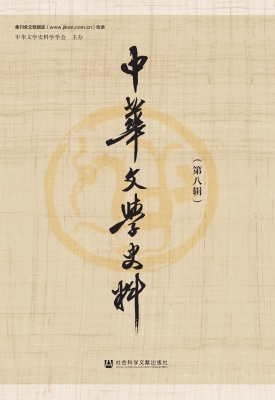 集刊全文数据库（www.jikan.com.cn）收录
中华文学史料学学会　主办
中華文學史料
（第八辑）
社会科学文献出版社
SOCIAL SCIENCES ACADEMIC PRESS (CHINA)